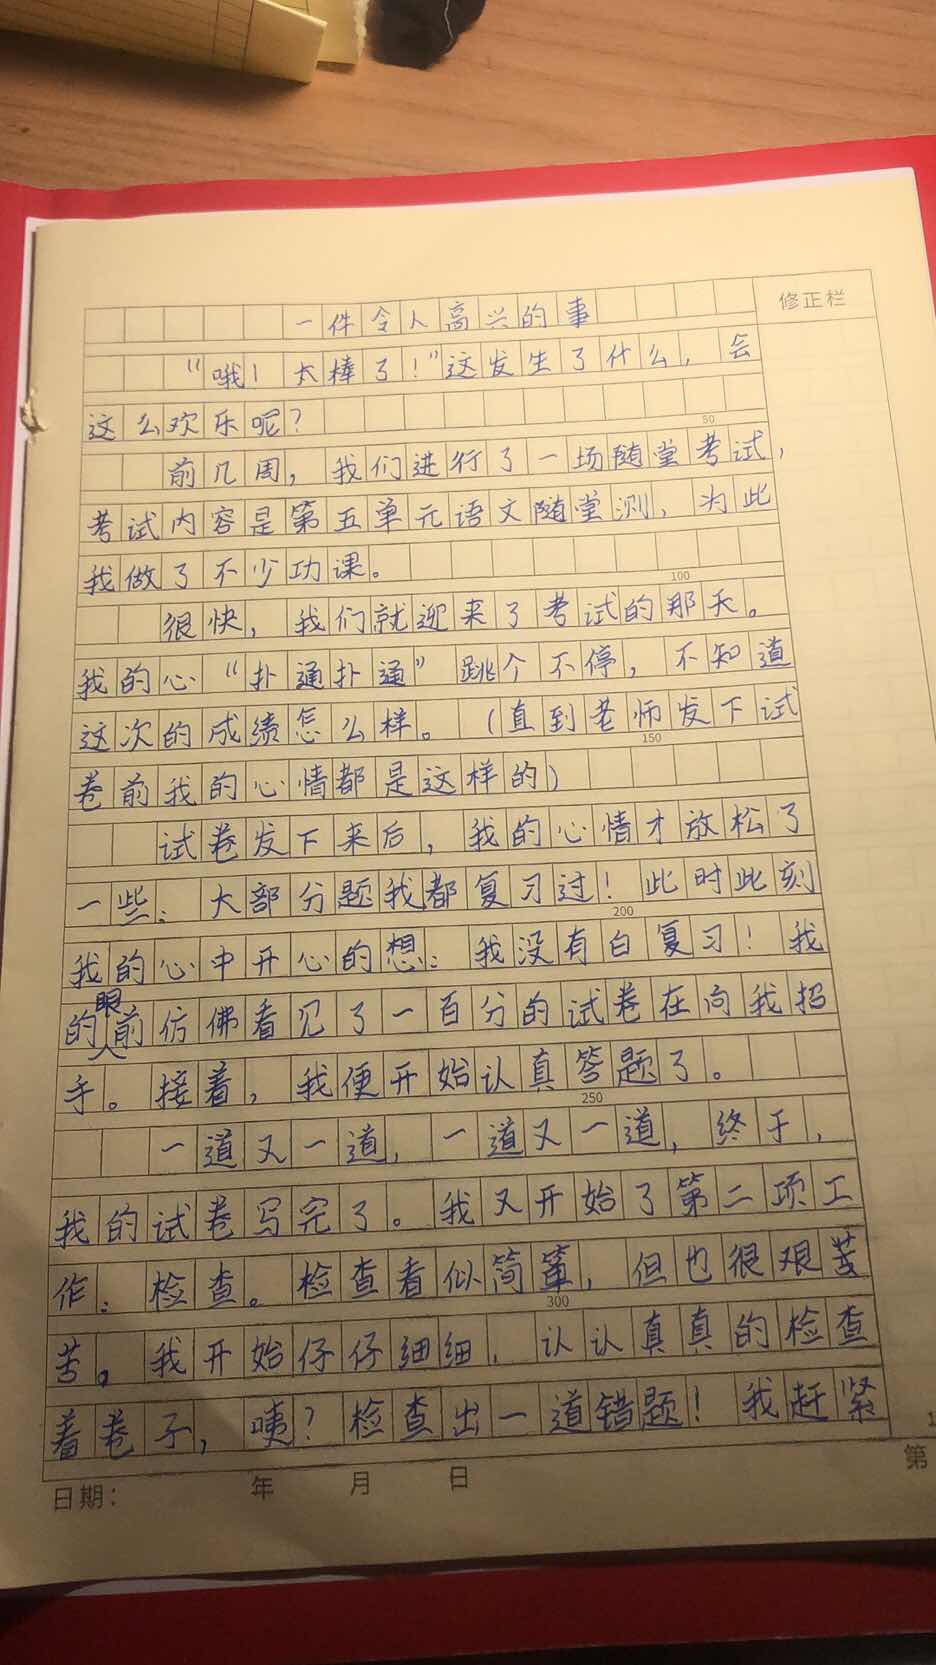 修正栏
一件令人高兴的事
“哦！太棒了！”这发生了什么，会
这么欢乐呢？
50
前几周，我们进行了一场随堂考试，
考试内容是第五单元语文随堂测，为此
我做了不少功课。
100
很快，我们就迎来了考试的那天。
我的心“扑通扑通”跳个不停，不知道
这次的成绩怎么样。（直到老师发下试
150
卷前我的心情都是这样的）
试卷发下来后，我的心情才放松了
一些：大部分题我都复习过！此时此刻
200
我的心中开心的想：我没有白复习！我
的眼前仿佛看见了一百分的试卷在向我招
手。接着，我便开始认真答题了。
250
一道又一道，一道又一道，终于，
我的试卷写完了。我又开始了第二项工
作：检查。检查看似简单，但也很艰苦
300
苦。我开始仔仔细细、认认真真的检查
着卷子，咦？检查出一道错题！我赶紧
日期： 年 月 日
第